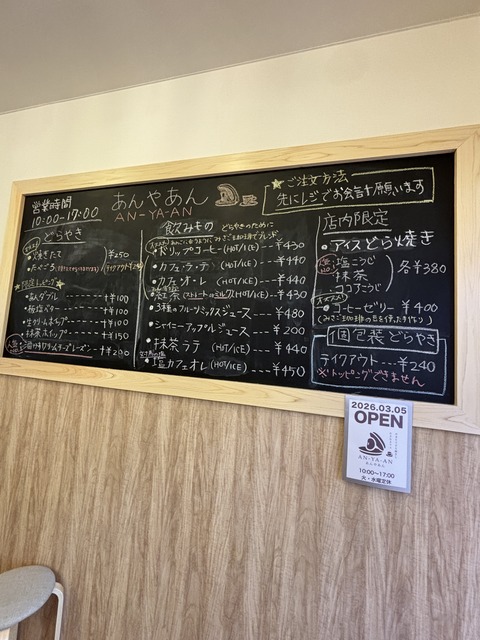 営業時間
10:00-17:00
あんやあん
AN-YA-AN
どらやき
焼きたて
¥250
あんダブル ---+¥100
塩バター ---+¥100
生クリームホイップ --+¥100
抹茶ホイップ ---+¥150
+¥200
飲みもの
どらやきのために
ドリップコーヒー(HOT/ICE) --¥430
カフェ・ラ・テ (HOT/ICE) ---¥440
カフェ・オ・レ (HOT/ICE) ---¥440
紅茶 (ストレートorミルク)(HOT/ICE) --¥430
3種のフルーツミックスジュース ---¥480
シャイニーアップルジュース --- ¥200
抹茶ラテ (HOT/ICE) ----¥440
塩カフェオレ(HOT/ICE) ----¥450
☆ご注文方法
先にレジでお会計お願います
店内限定
アイスどら焼き
塩こうじ
抹茶
ココアこうじ
各¥380
コーヒーゼリー ¥400
個包装どらやき
テイクアウト---¥240
※トッピングできません
2026.03.05
OPEN
AN-YA-AN
あんやあん
10:00〜17:00
火・水曜定休